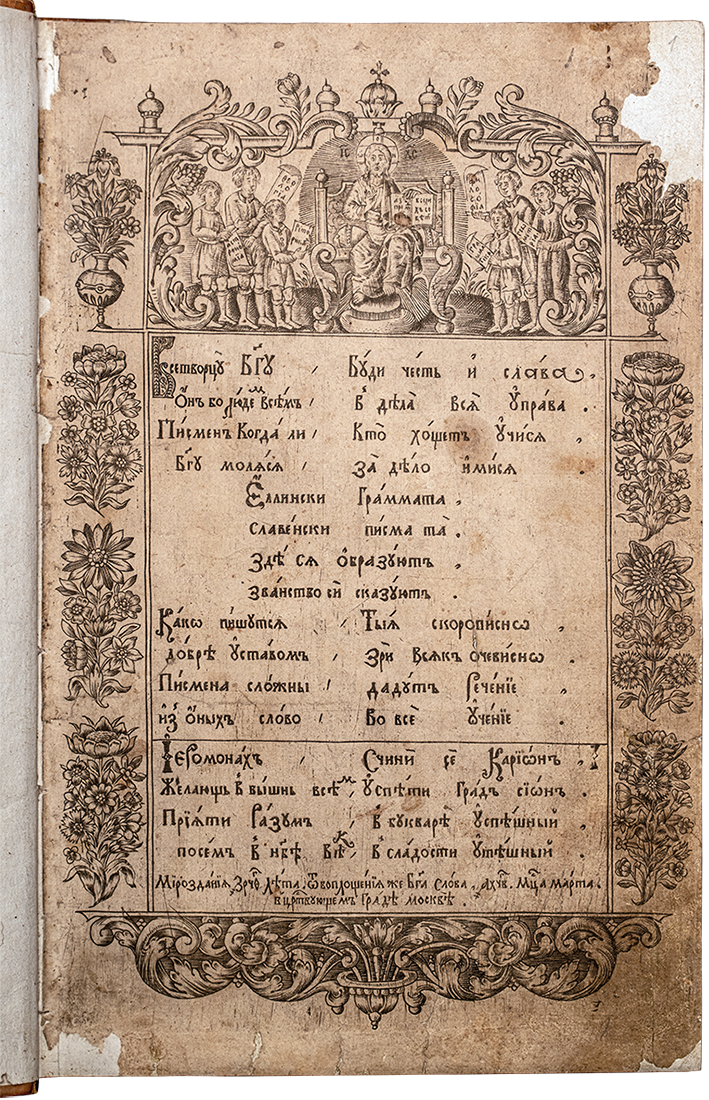 1
ІС ХС
Всетворцꙋ Бг҃ꙋ , Бꙋди че́сть и҆ сла́ва ,
Ѻ҆нъ бо лю́деⷨ всѣ́мъ , В̾ дѣ́ла всѧ̀ ᲂу҆пра́ва .
Пи́сменъ Когда̀ ли , Кто̀ хо́щетъ ᲂу҆чи́сѧ ,
Бг҃ꙋ молѧ́сѧ , За̀ дѣ́ло и҆ми́сѧ .
Е҆́ллински Гра́ммата ,
Славе́нски пи́сма та̀ .
Здѣ́ сѧ ѻ҆бразꙋ́ютъ ,
Зва́нство си̑ сказꙋ́ютъ .
Ка́кѡ пи́шꙋтсѧ , Ты́ѧ скоропи́снѡ ,
до́брѣ ᲂу҆ста́вомъ , Зрѝ всѧ́къ ѻ҆чеви́снѡ .
Писмена сло́жны , даду́тъ Рече́нїе ,
и҆з̾ ѻ҆́ныхъ сло́во , Во всѐ ᲂу҆че́нїе .
І҆еромона́хъ , Счинѝ сѐ Карїѡ́нъ ,
Жела́ющь в̾ вы́шнь всѣⷨ , ᲂу҆спѣ́ти Гра́дъ сїѡ́нъ .
Прїѧ́ти Ра́зꙋмъ , в̾ бꙋкварѣ̀ ᲂу҆спѣ́шный ,
посе́мъ в̾ нб҃ѣ вѣⷦ҇ , в̾ сла́дости ᲂу҆тѣ́шный .
Мірозда́нїѧ , ЗРЧ҃Ѳ . Лѣ́та , Ѿ воплоще́нїѧ же Бг҃а Сло́ва , АХЧ҃В . Мцⷭ҇а ма́рта .
в црⷭ҇твꙋющемъ Гра́дѣ Москвѣ̀ .